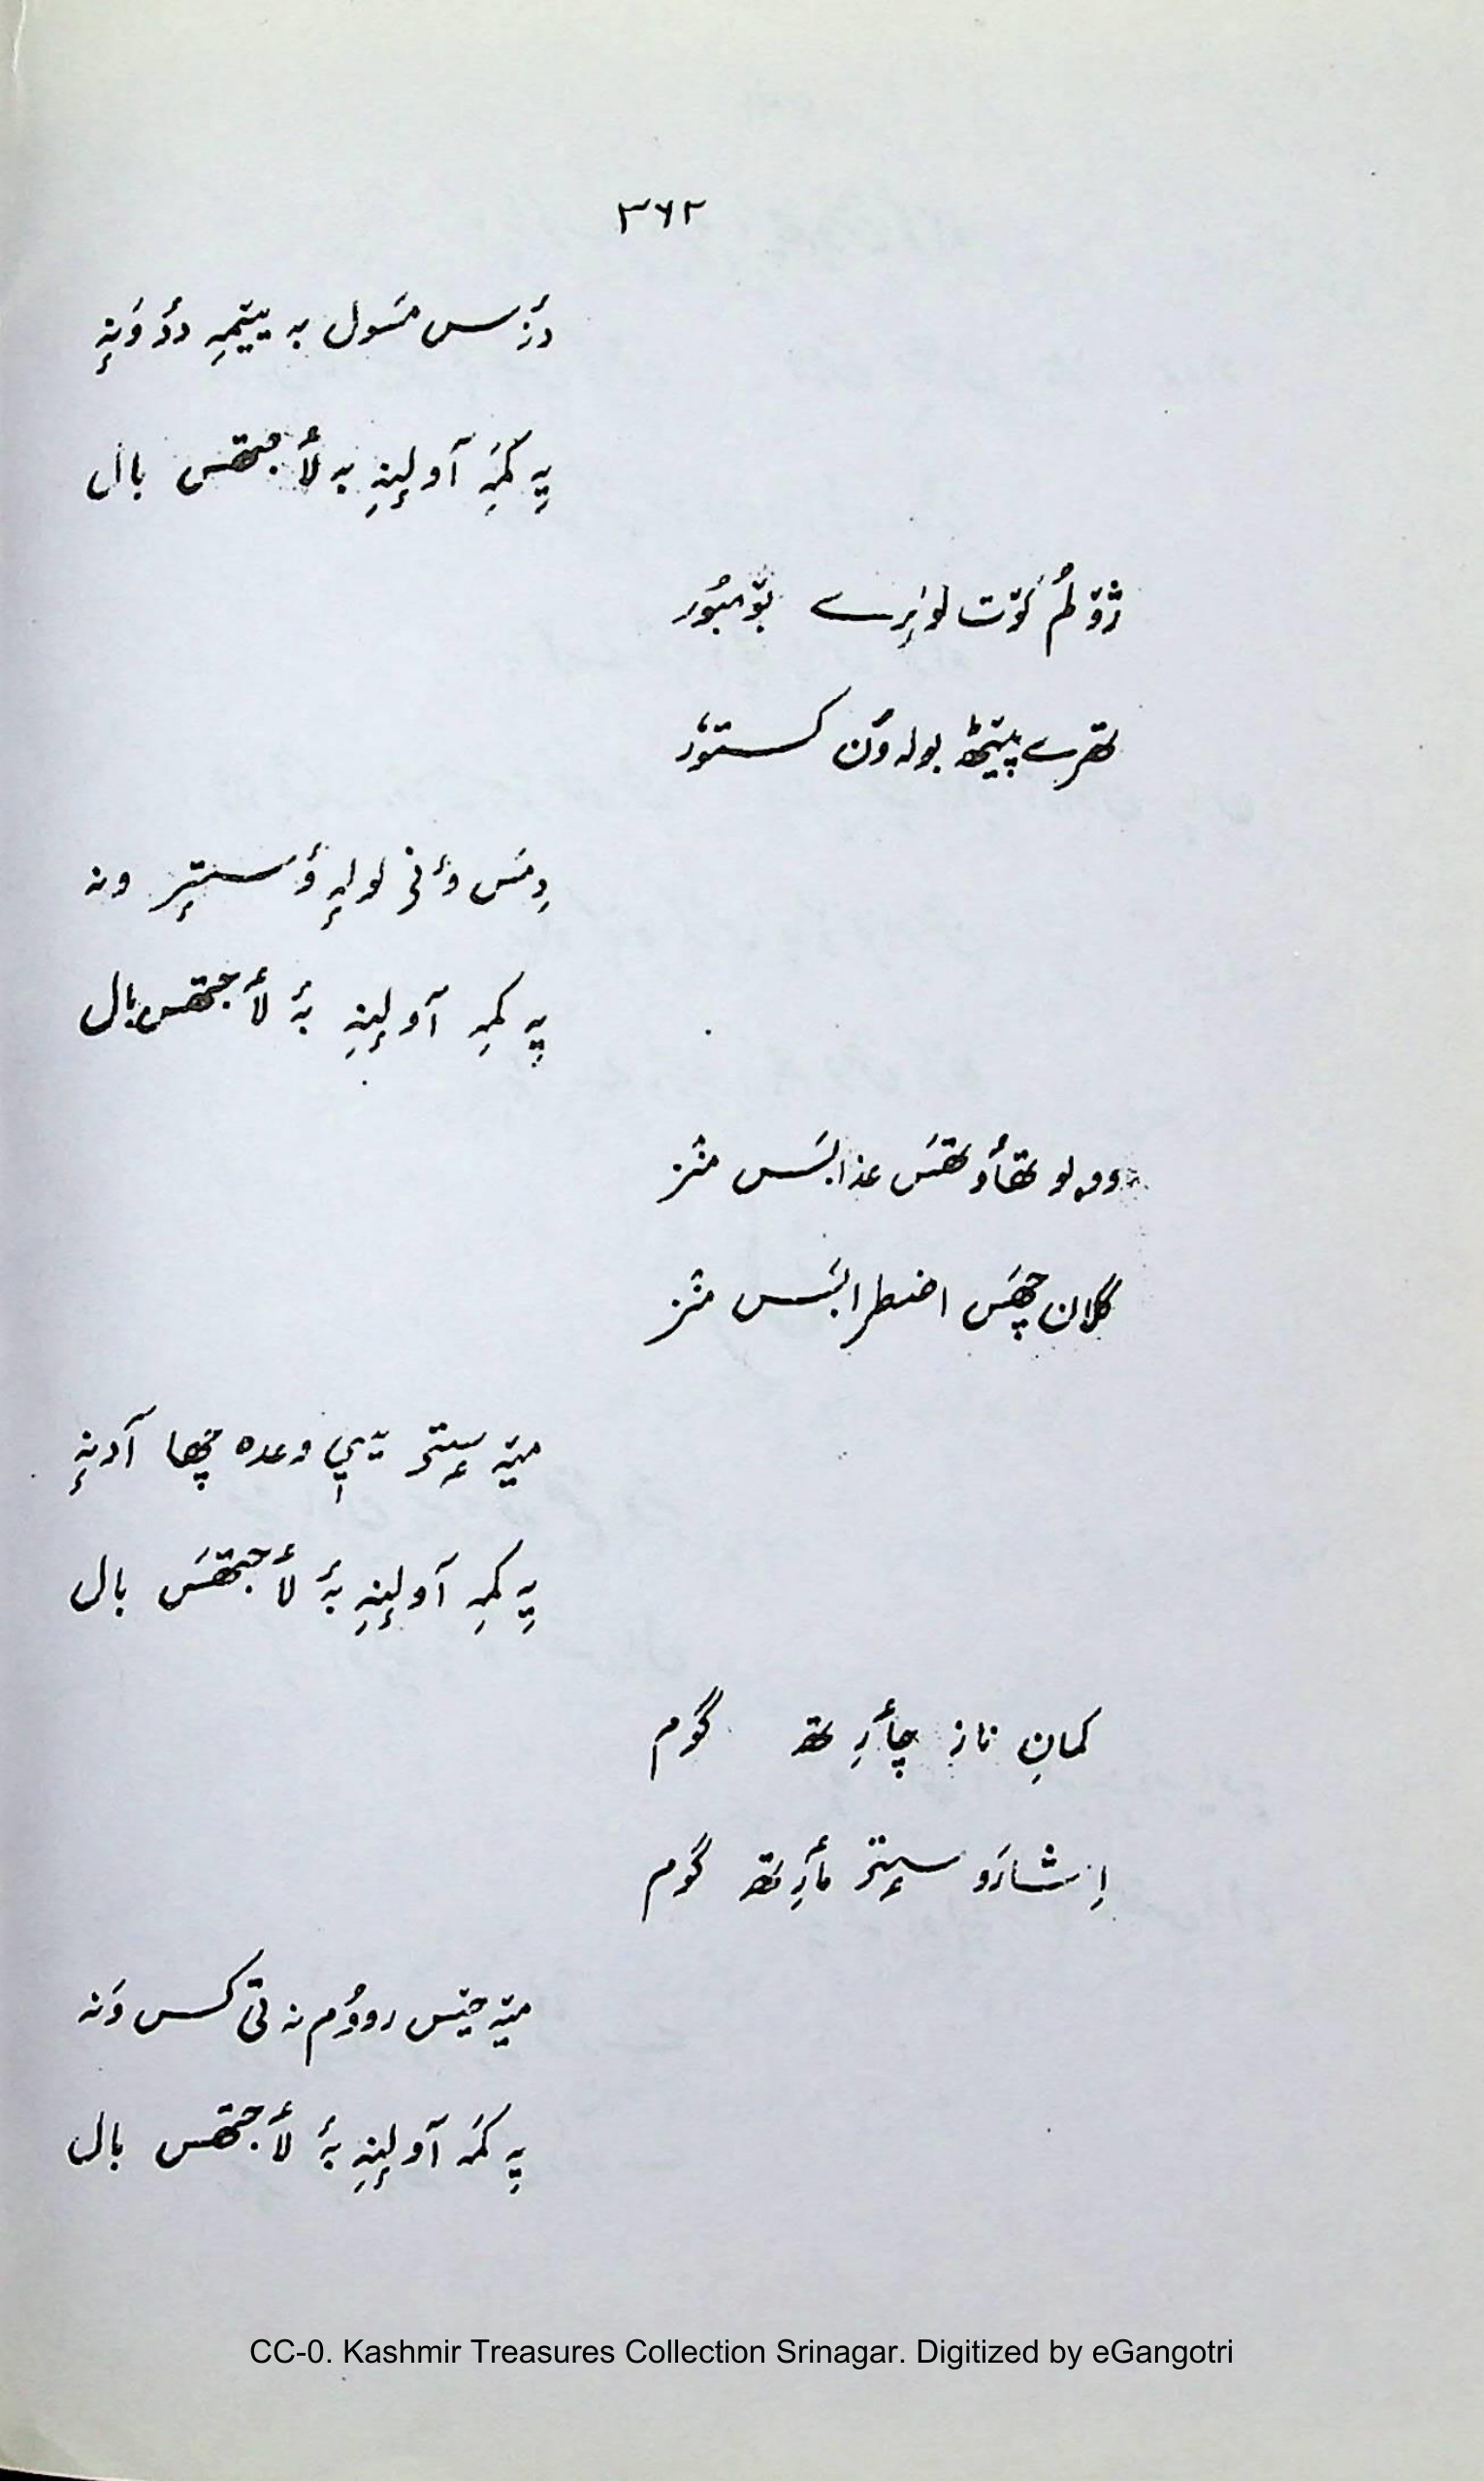 ۳۶۲
دٔزس مَسول بہ ییٚمہِ دٔدوَنہِ
یہِ کَمہِ آولِینہِ بہ لأجتھس بال
ژوٚلُم کوٚت لوٗرِے بوٚمبُور
تھرے پیٚٹھ بولہ وُن کستوٗر
دِمَس وٲنی لولہِ وٕستِر ونہ
یہِ کمہِ آولِینہِ بہٕ لأجتھس بال
وولو تھٲوتھَس عذابَس منٛز
گلان چھَس اضطرابَس منٛز
میٚہ سٟتی یی وعدہ چھا آدنہٕ
یہِ کمہِ آولِینہِ بہٕ لأجتھَس بال
کمانِ ناز چٲرِتھ گوم
اِشارَو سٟتی مٲرِتھ گوم
میٚہ حیٚس روودُم نہ تی کس وَنہ
یہِ کَمہ آولِینہِ بہٕ لأجتھس بال
CC-0. Kashmir Treasures Collection Srinagar. Digitized by eGangotri